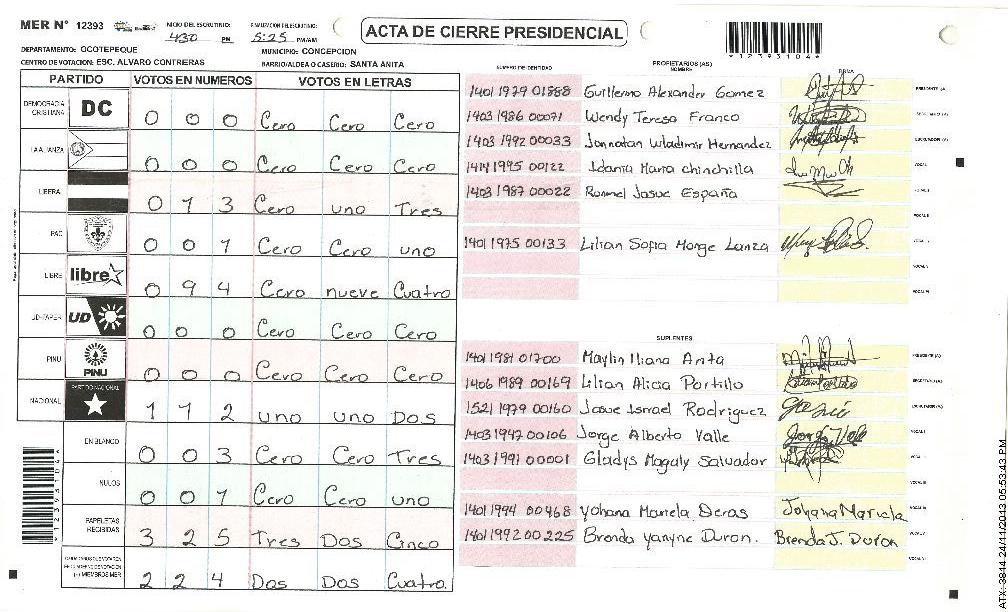 MER N° 12393
INICIO DEL ESCRUTINIO: 430 PM
FINALIZACION DEL ESCRUTINIO: 5:25 PM/AM
ACTA DE CIERRE PRESIDENCIAL
*12393104*
DEPARTAMENTO: OCOTEPEQUE
MUNICIPIO: CONCEPCION
CENTRO DE VOTACION: ESC. ALVARO CONTRERAS
BARRIO/ALDEA O CASERIO: SANTA ANITA
PARTIDO VOTOS EN NUMEROS VOTOS EN LETRAS
DEMOCRACIA CRISTIANA DC 0 0 0 Cero Cero Cero
LA ALIANZA 0 0 0 Cero Cero Cero
LIBERAL 0 1 3 Cero uno Tres
PAC 0 0 1 Cero Cero uno
LIBRE libre 0 9 4 Cero nueve Cuatro
UD-FAPER UD 0 0 0 Cero Cero Cero
PINU PINU 0 0 0 Cero Cero Cero
NACIONAL PARTIDO NACIONAL 1 1 2 uno uno Dos
EN BLANCO 0 0 3 Cero Cero Tres
NULOS 0 0 1 Cero Cero uno
PAPELETAS RECIBIDAS 3 2 5 Tres Dos Cinco
(+) MIEMBROS MER 2 2 4 Dos Dos Cuatro.
*12393104*
NUMERO DE IDENTIDAD PROPIETARIOS (AS) NOMBRE FIRMA
1401 1979 01888 Guillermo Alexander Gomez PRESIDENTE (A)
1403 1986 00071 Wendy Teresa Franco SECRETARIO (A)
1403 1992 00033 Jonnatan Wladimir Hernandez ESCRUTADOR (A)
1414 1995 00122 Idania Maria chinchilla VOCAL I
1403 1987 00022 Rommel Josue España VOCAL II
VOCAL III
1401 1975 00133 Lilian Sofia Monge Lanza VOCAL IV
VOCAL V
VOCAL VI
SUPLENTES
1401 1981 01700 Maylin Iliana Anta PRESIDENTE (A)
1406 1989 00169 Lilian Alicia Portillo SECRETARIO (A)
1521 1979 00160 Josue Isrrael Rodriguez ESCRUTADOR (A)
1403 1947 00106 Jorge Alberto Valle Jorge Valle VOCAL I
1403 1991 00001 Gladys Magaly Salvador VOCAL II
VOCAL III
1401 1994 00468 Yohana Mariela Deras Johana Mariela VOCAL IV
1401 1992 00225 Brenda Yanyne Duron. Brenda J. Duron VOCAL V
VOCAL VI
ATX-3844-24/11/2013 05:53:43 PM